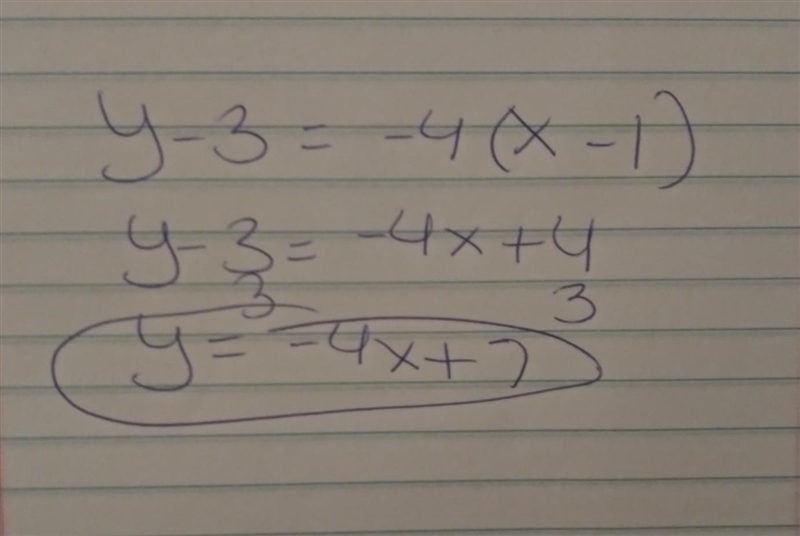 y - 3 = -4(x - 1)
y - 3 = -4x + 4
3 3
y = -4x + 7